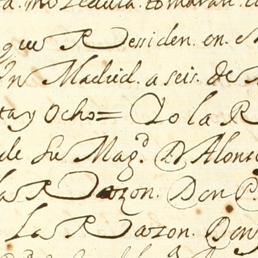 mi Zedula tomaran
que Residen en
en Madrid a seis de
ta y Ocho = Yo la R
de Su Magd. D. Alonso
la Razon. Don P
La Razon. Don